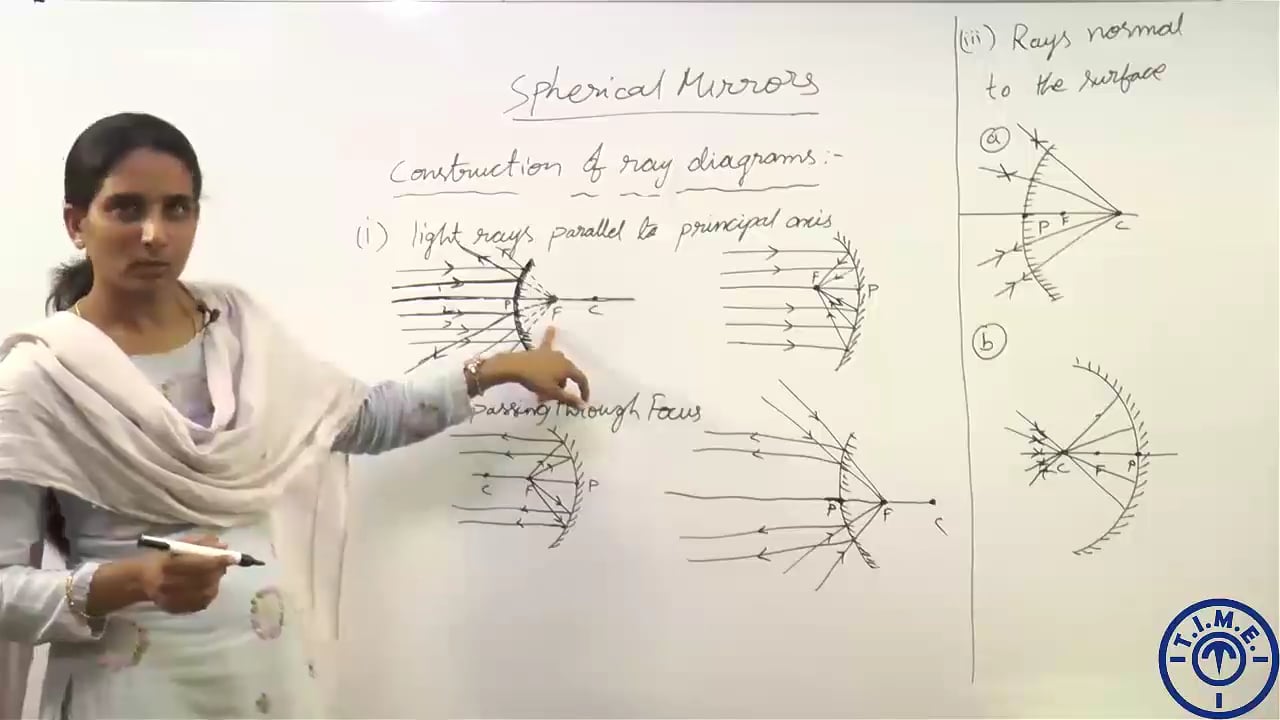 Spherical Mirrors
Construction of ray diagrams:-
(i) light rays parallel to principal axis
P F C
F P
passing through Focus
C F P
P F C
(iii) Rays normal
to the surface
a
P F C
b
C F P
T.I.M.E.